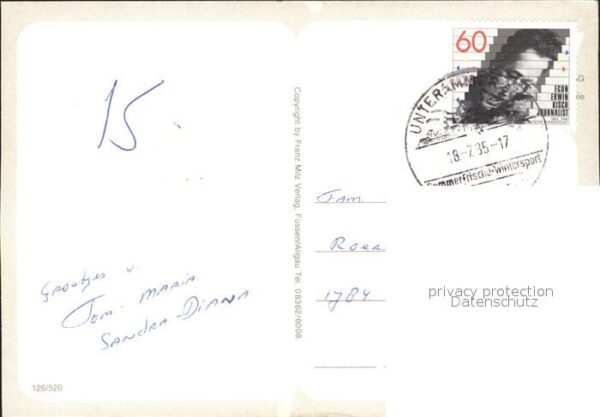 60
EGON
ERWIN
KISCH
JOURNALIST
UNTERAMME
18.-7.85-17
Sommerfrische-Wintersport
15.
Copyright by Franz Milz Verlag, Füssen/Allgäu Tel. 08362/6008
Fam
Roer
1784
privacy protection
Datenschutz
Groetjes v.
Tom. MARIA
SANDRA-DIANA
126/520